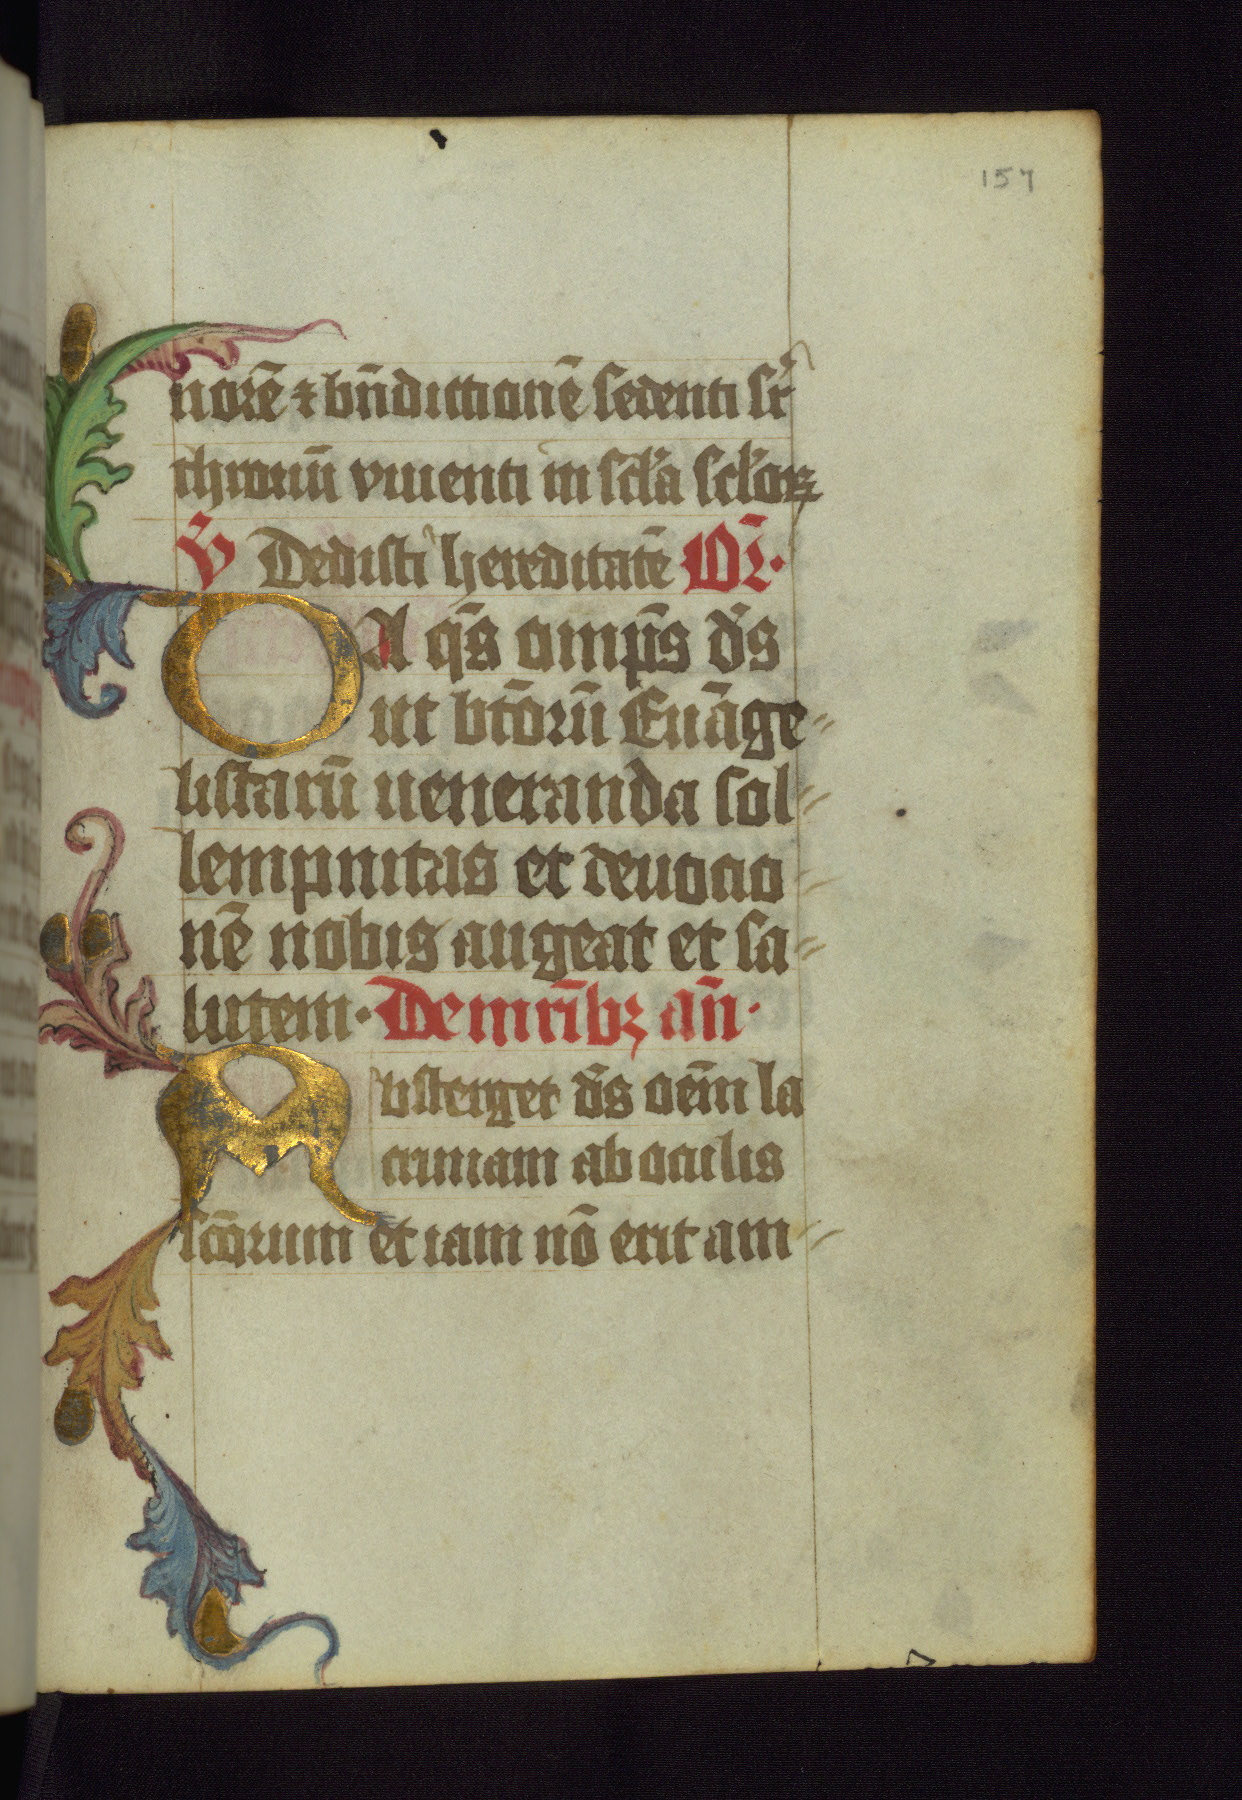 157
norē ⁊ bn̄dictionē sedenti sr̄
thronū viuenti in scl̄a scl̄oꝝ
v̄ Dedisti hereditatē Or̄·
DA qs̄ omp̄s ds̄
ut bt̄orū Euāge-
listarū ueneranda sol-
lempnitas et deuocio-
nē nobis augeat et sa-
lutem· De mr̄ibꝫ an̄·
Absterget ds̄ oēm la
crimam ab oculis
sc̄orum et iam nō erit am-